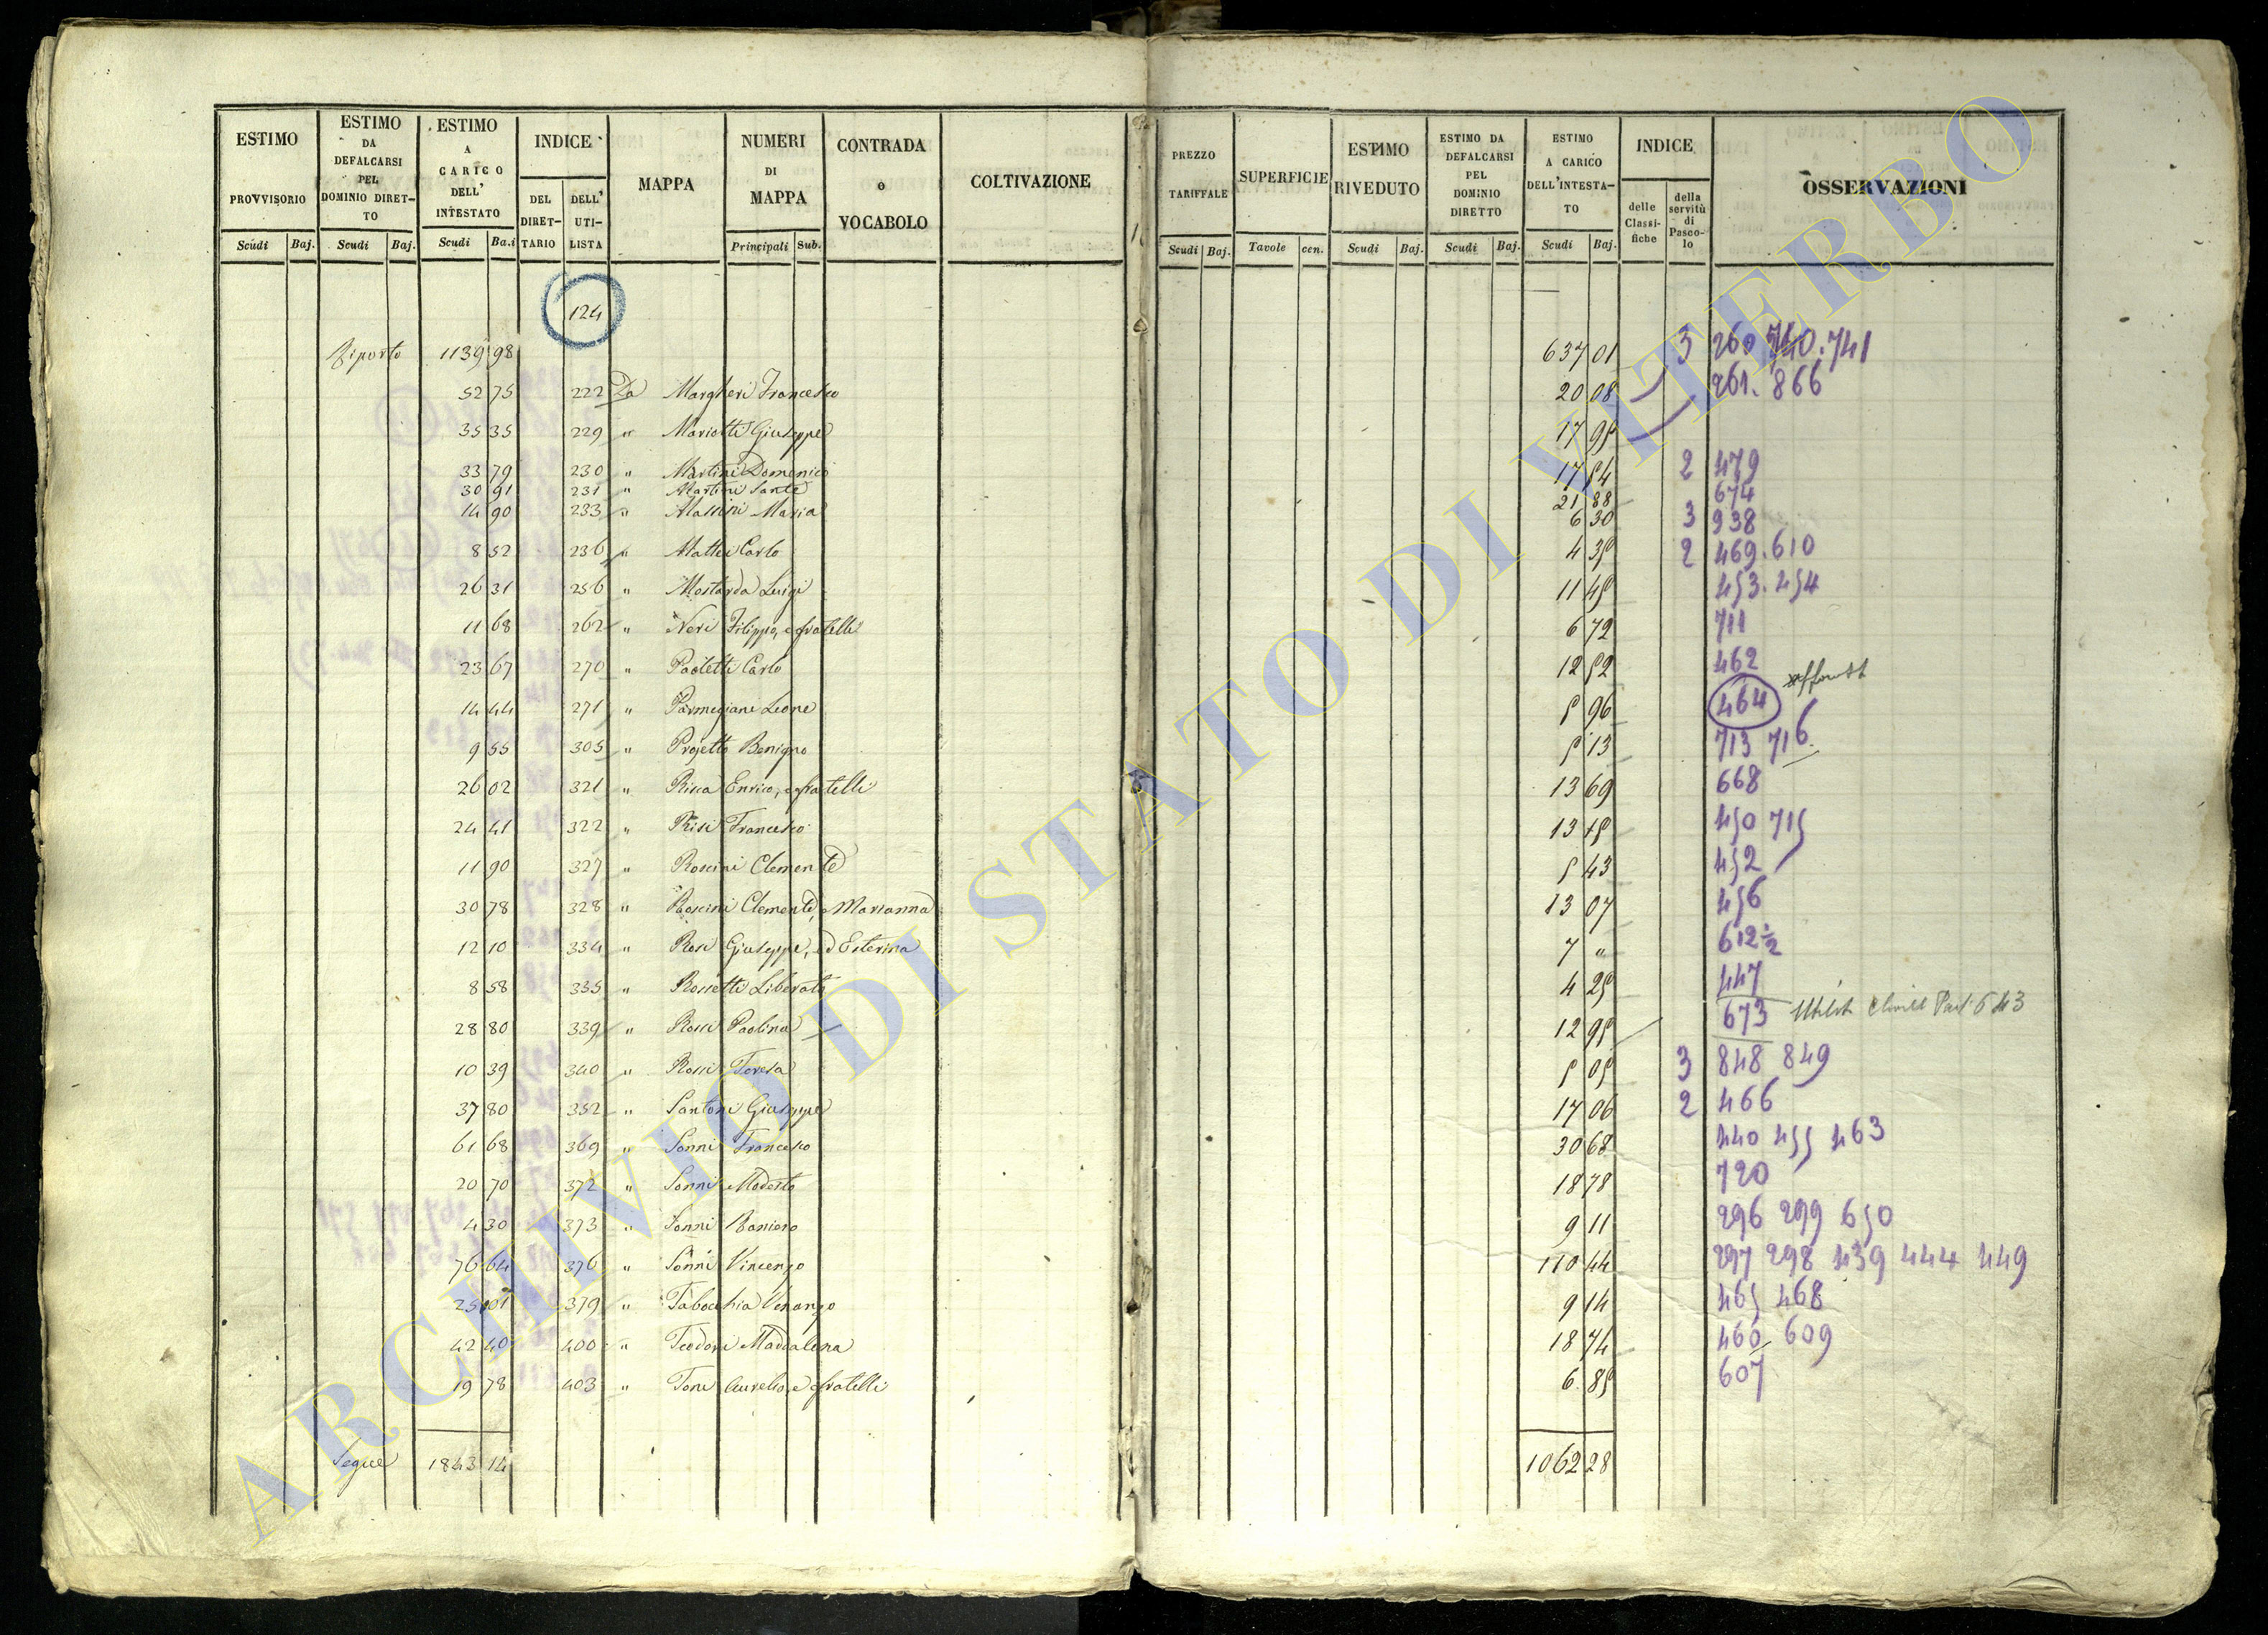 ESTIMO PROVVISORIO Scudi Baj.
ESTIMO DA DEFALCARSI PEL DOMINIO DIRET-TO Scudi Baj.
ESTIMO A CARICO DELL' INTESTATO Scudi Ba.i
INDICE DEL DIRET-TARIO DELL' UTI-LISTA
MAPPA
NUMERI DI MAPPA Principali Sub.
CONTRADA o VOCABOLO
COLTIVAZIONE
PREZZO TARIFFALE Scudi Baj.
SUPERFICIE Tavole cen.
ESTIMO RIVEDUTO Scudi Baj.
ESTIMO DA DEFALCARSI PEL DOMINIO DIRETTO Scudi Baj.
ESTIMO A CARICO DELL'INTESTA-TO Scudi Baj.
INDICE delle Classi-fiche della servitù di Pasco-lo
OSSERVAZIONI
124
Riporto 1139 98 637 01 3 260 740.741
52 75 222 Da Margheri Francesco 20 08 261. 866
35 35 229 " Mariotti Giuseppe 17 95
33 79 230 " Martini Domenico 17 54 2 479
30 91 231 " Martini Sante 21 88 674
14 90 233 " Massini Maria 6 30 3 938
8 52 236 " Mattei Carlo 4 35 2 469.610
26 31 256 " Mostarda Luigi 11 45 453.454
11 68 262 " Neri Filippo, e fratelli 6 72 711
23 67 270 " Paoletti Carlo 12 52 462
14 44 271 " Parmegiani Leone 5 96 464
9 55 305 " Projetto Benigno 5 13 713 716
26 02 321 " Ricca Enrico, e fratelli 13 69 668
24 41 322 " Risi Francesco 13 45 450 715
11 90 327 " Roscini Clemente 5 43 452
30 78 328 " Roscini Clemente, e Marianna 13 07 456
12 10 334 " Rosi Giuseppe, ed Esterina 7 " 612 1/2
8 58 335 " Rossetti Liberato 4 25 447
28 80 339 " Rossi Paolina 12 95 673 643
10 39 340 " Rossi Teresa 5 05 3 848 849
37 80 352 " Santoni Giuseppe 17 06 2 466
61 68 369 " Sonni Francesco 30 68 440 455 463
20 70 372 " Sonni Modesto 18 78 720
4 30 373 " Sonni Raniero 9 11 296 299 650
76 64 376 " Sonni Vincenzo 110 44 297 298 439 444 449
25 01 379 " Tabocchia Venanzo 9 14 465 468
42 40 400 " Teodori Maddalena 18 74 460 609
19 78 403 " Toni Aurelio, e fratelli 6 85 607
Segue 1843 14 1062 28
ARCHIVIO DI STATO DI VITERBO